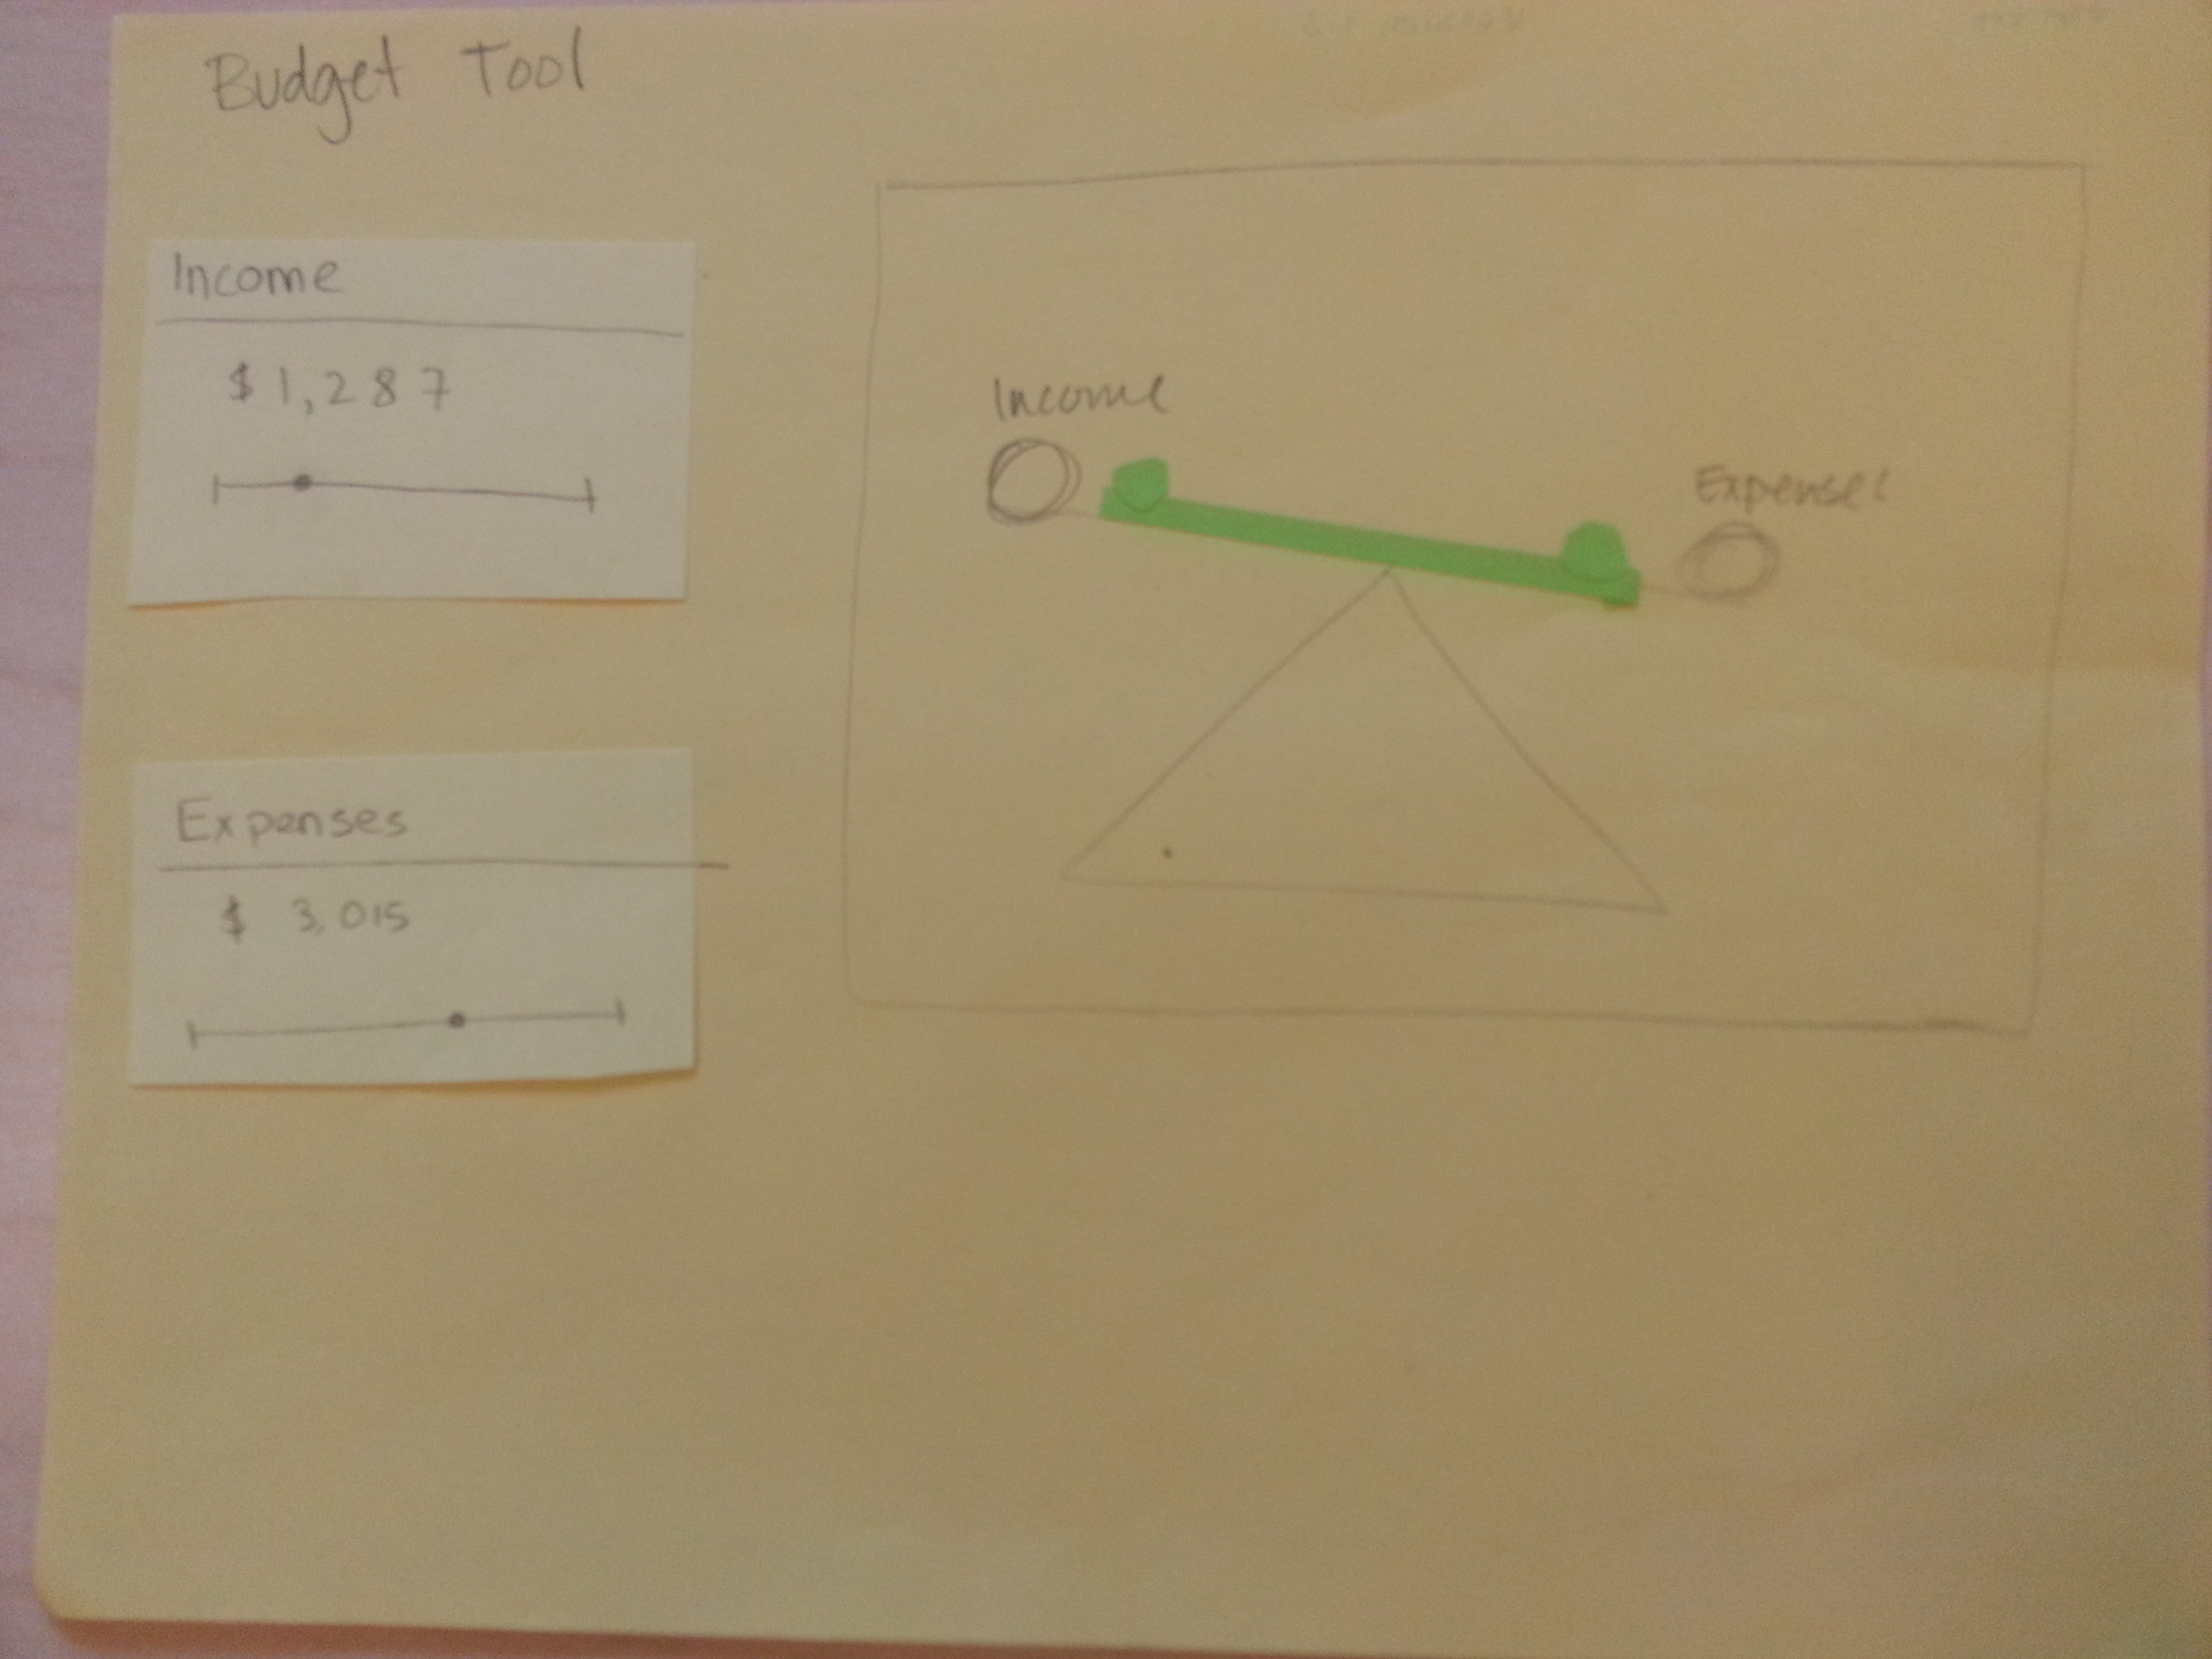 Budget Tool
Income
$1,287
Expenses
$ 3,015
Income
Expenses